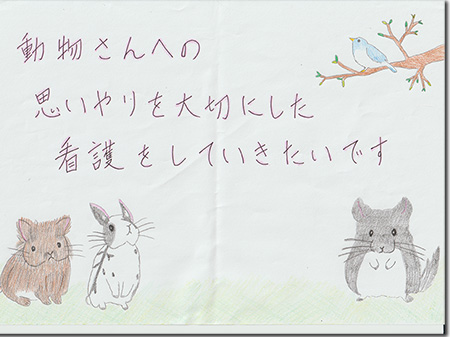 動物さんへの
思いやりを大切にした
看護をしていきたいです